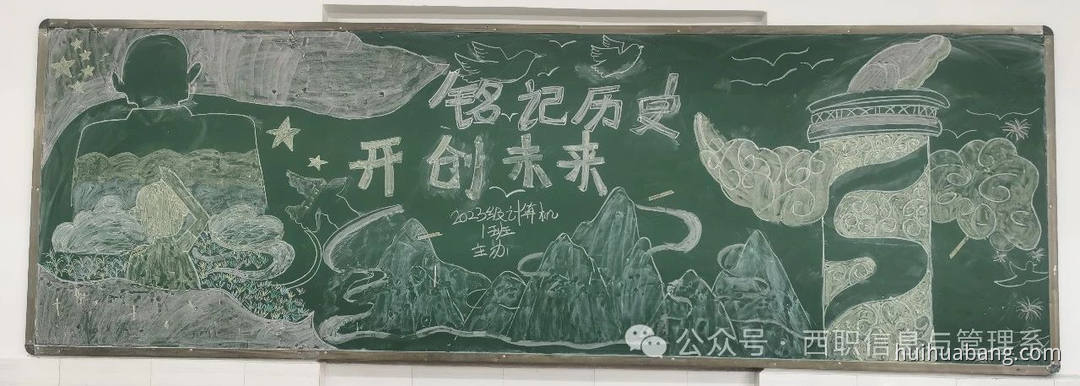 铭记历史
开创未来
2023级计算机
1班
主办
公众号·西职信息与管理系
huihuabang.com